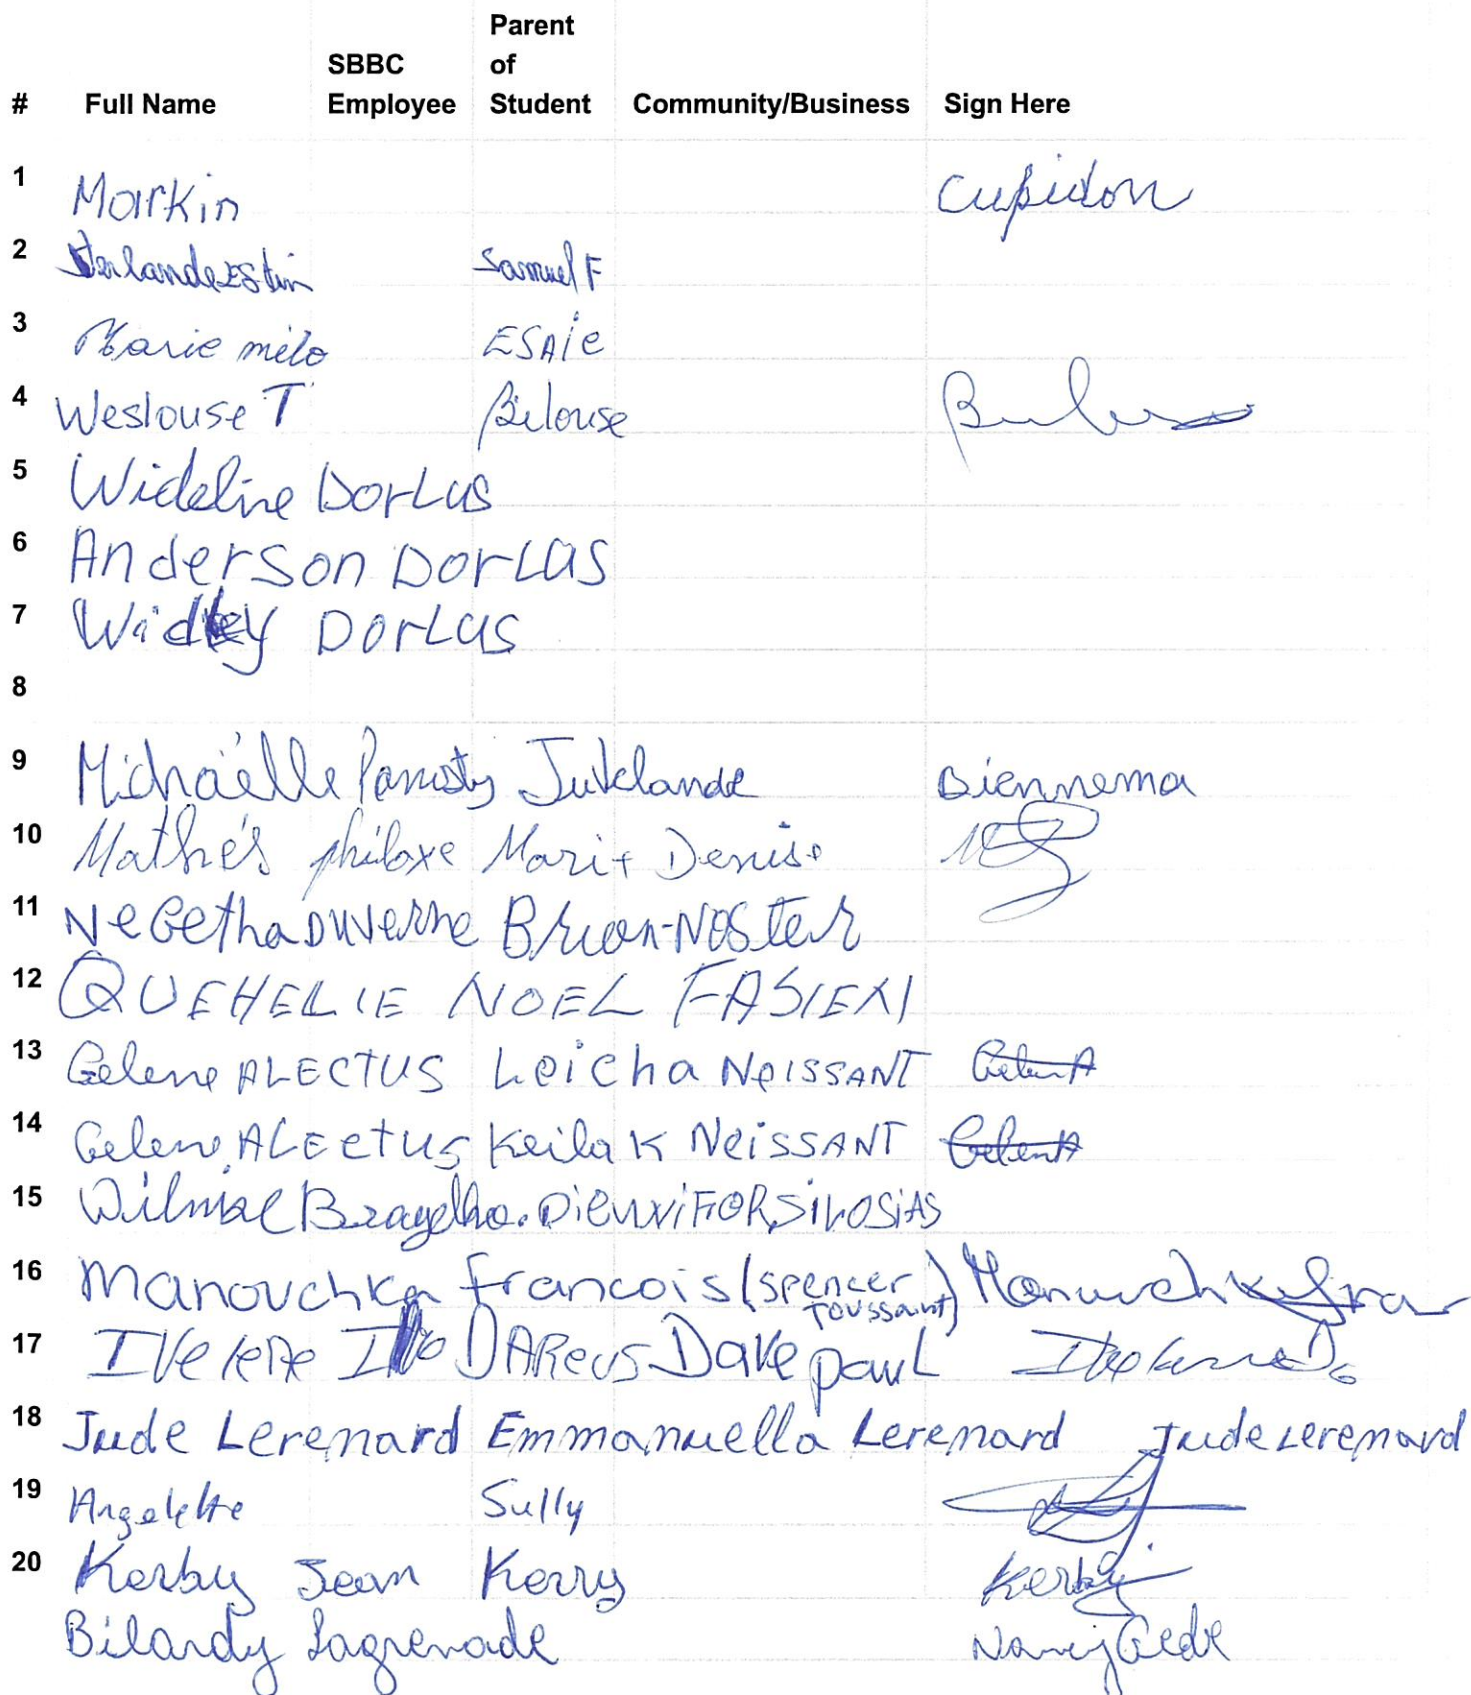 # Full Name SBBC Employee Parent of Student Community/Business Sign Here
1 Markin Cupidon
2 Samuel F
3 Marie milo ESAie
4 Weslouse T Belouse
5 Wideline DorLus
6 Anderson DorLus
7 Widley DorLus
8
9 Michaëlle Juvelande Biennema
10 Mathés philoxe Marie Denise
11 Negetha Duverne Brian-Noster
12 QUEHELIE NOEL FASIEXI
13 Gelene ALECTUS Leicha NeISSANT Gelen A
14 Gelene ALECTUS Keila K NeiSSANT Gelen A
15
16 Manouchka francois (spencer Toussaint) Manouchka fra
17 DARCUS Dave paul
18 Jude Lerenard Emmanuella Lerenard Jude Lerenard
19 Angelette Sully
20 Kerby Jean Kerry Kerby
Bilardy Lagrenade Nancy Cede